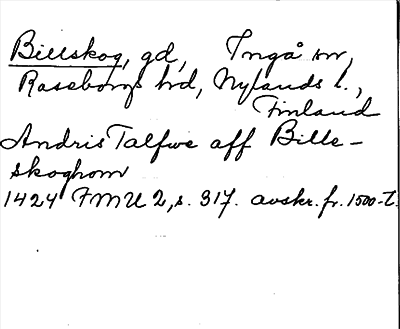 Billskog, gd, Ingå sn,
Raseborgs hd, Nylands l.,
Finland
Andris Talfwe aff Bille-
skoghom
1424 FMU 2, s. 317. avskr. fr. 1500-t.